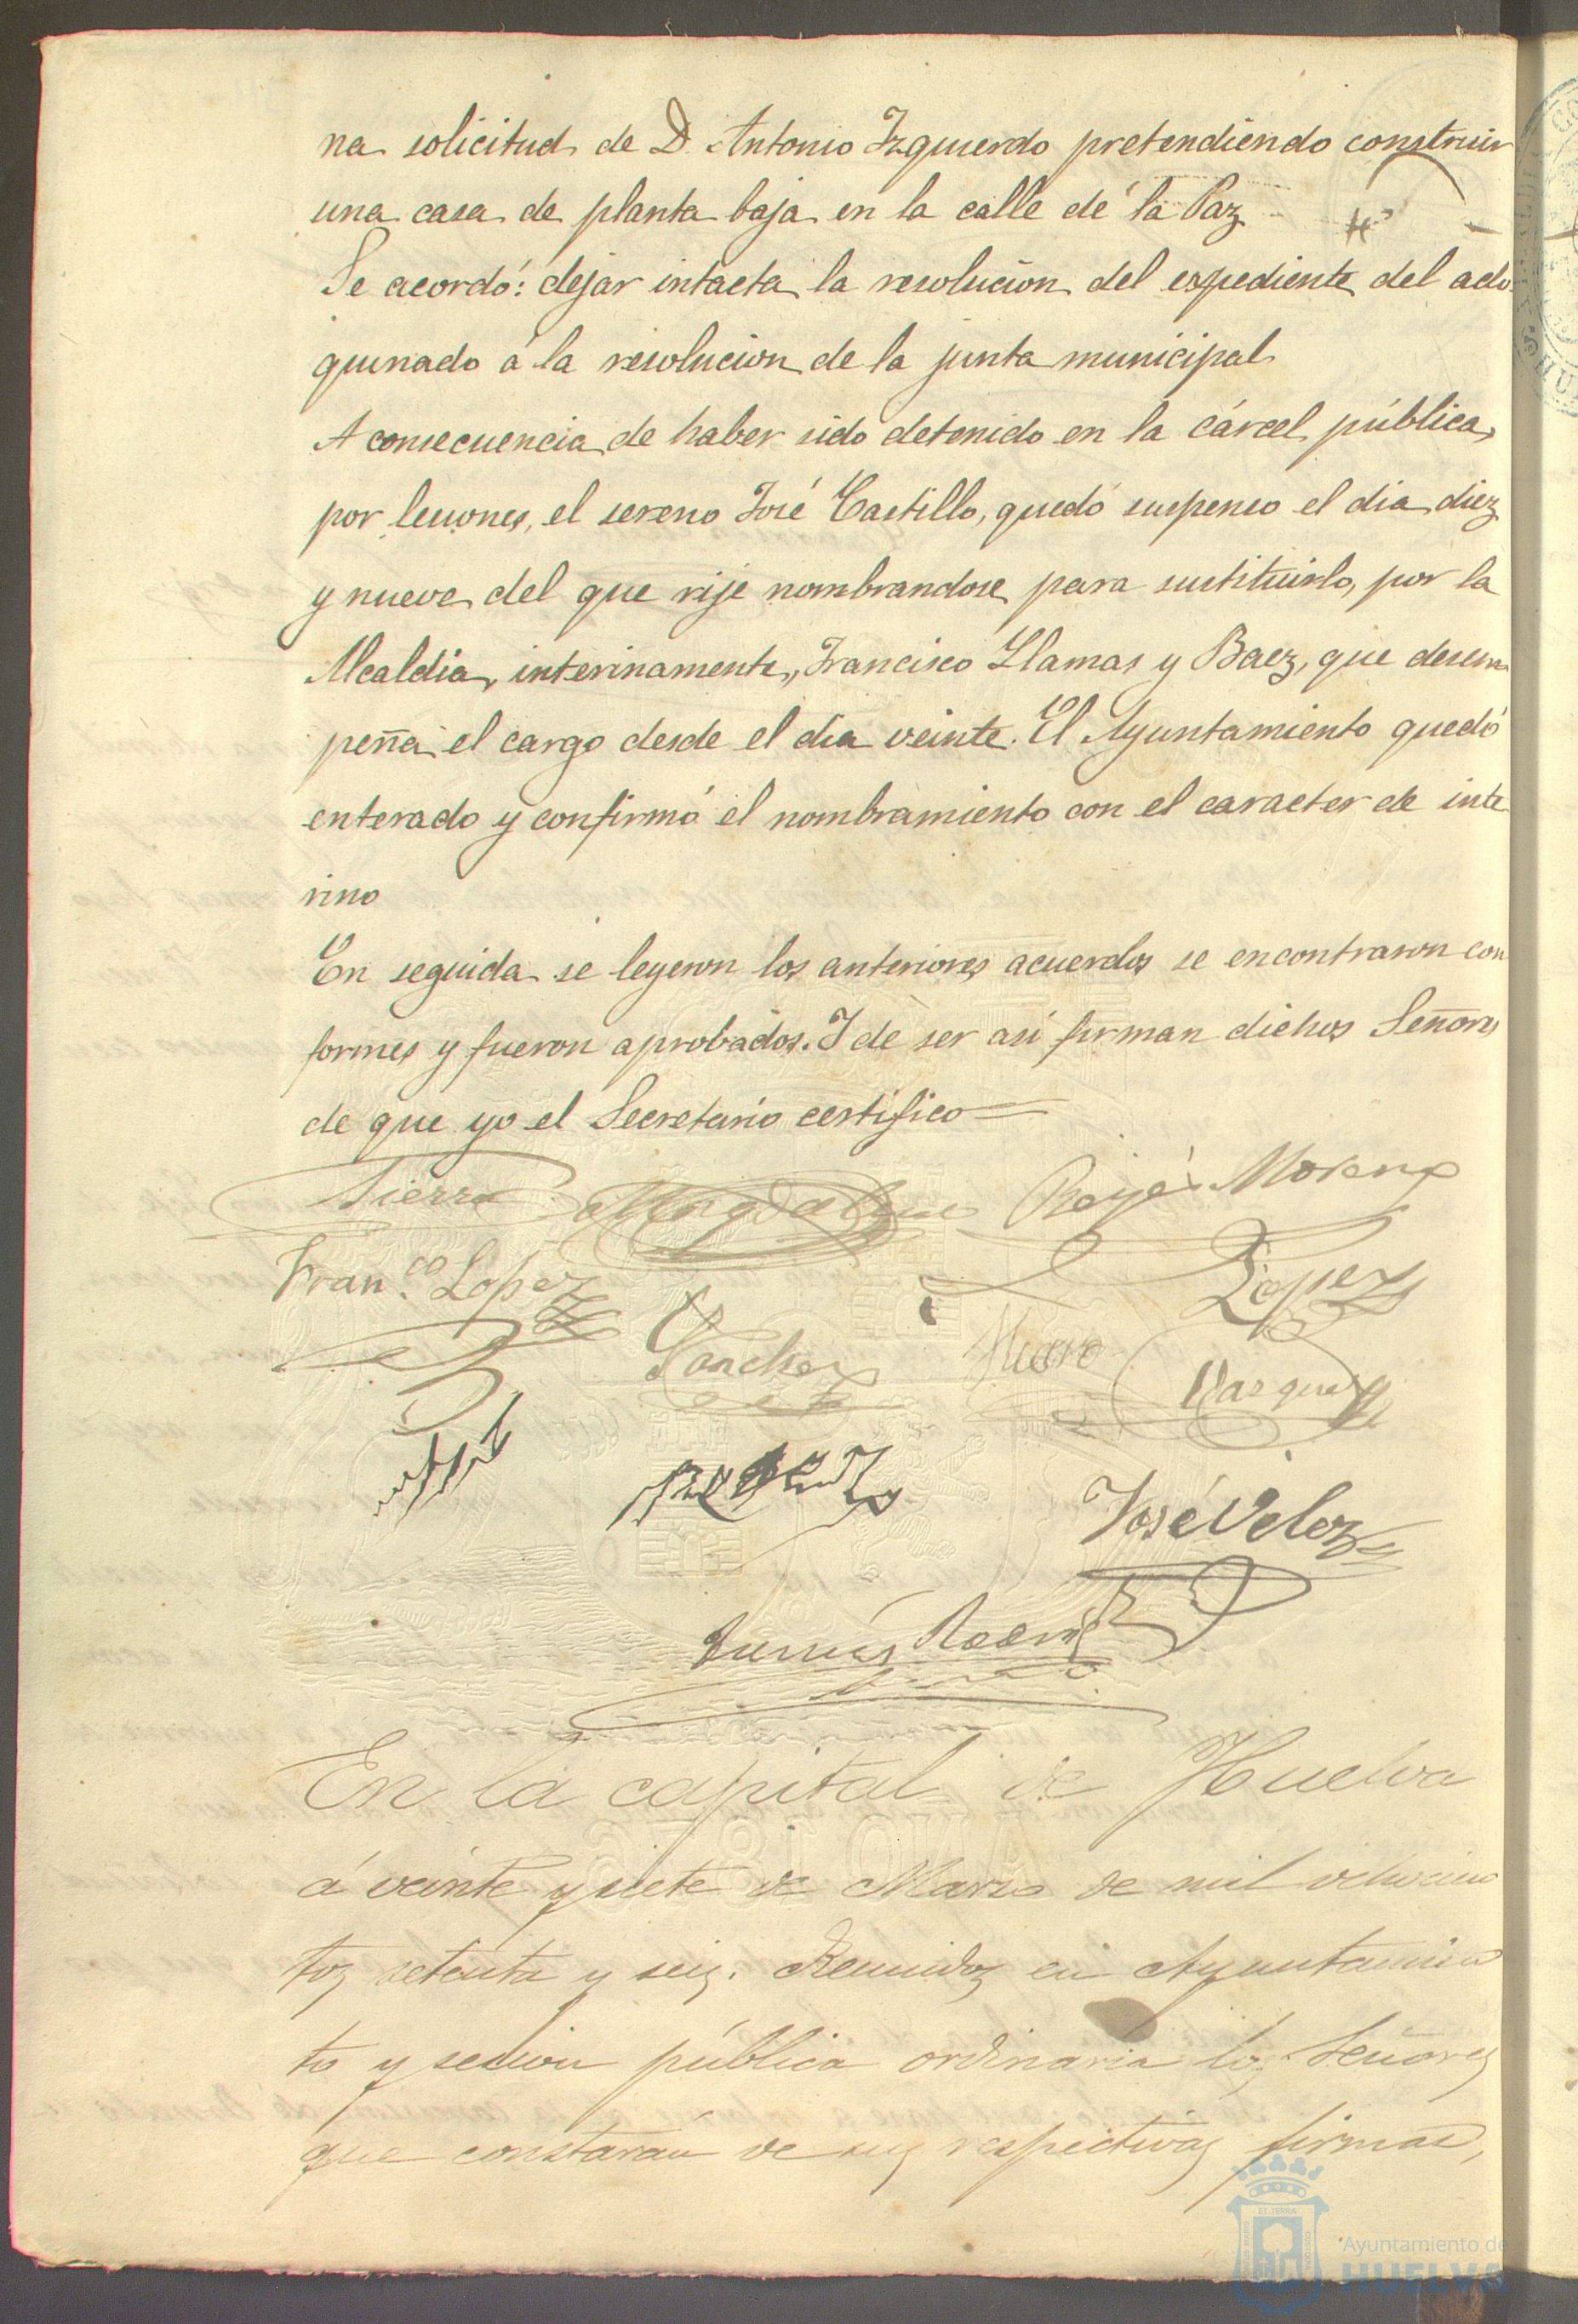 na solicitud de D. Antonio Izquierdo pretendiendo construir
una casa de planta baja en la calle de la Paz
Se acordó: dejar intacta la resolucion del espediente del ado
quinado á la resolucion de la junta municipal
A consecuencia de haber sido detenido en la cárcel pública,
por lesiones, el sereno José Castillo, quedó suspenso el dia diez
y nueve del que rije nombrandose para sustituirlo, por la
Alcaldia, interinamente, Francisco Llamas y Baez, que desem
peña el cargo desde el dia veinte. El Ayuntamiento quedó
enterado y confirmó el nombramiento con el caracter de inte
rino
En seguida se leyeron los anteriores acuerdos se encontraron con
formes y fueron aprobados. I de ser asi firman dichos Señores
de que yo el Secretario certifico
Sierra Magdaleno Rojas Moreno
Fran.co Lopez Lopez
Sanchez Nuevo Vazquez
José Veloz
En la capital de Huelva
á veinte y siete de Marzo de mil ochocien
tos setenta y seis. Reunidos en Ayuntamien
to y sesion pública ordinaria los Señores
que constarán de sus respectivas firmas,
AÑO 1876
Ayuntamiento de
HUELVA